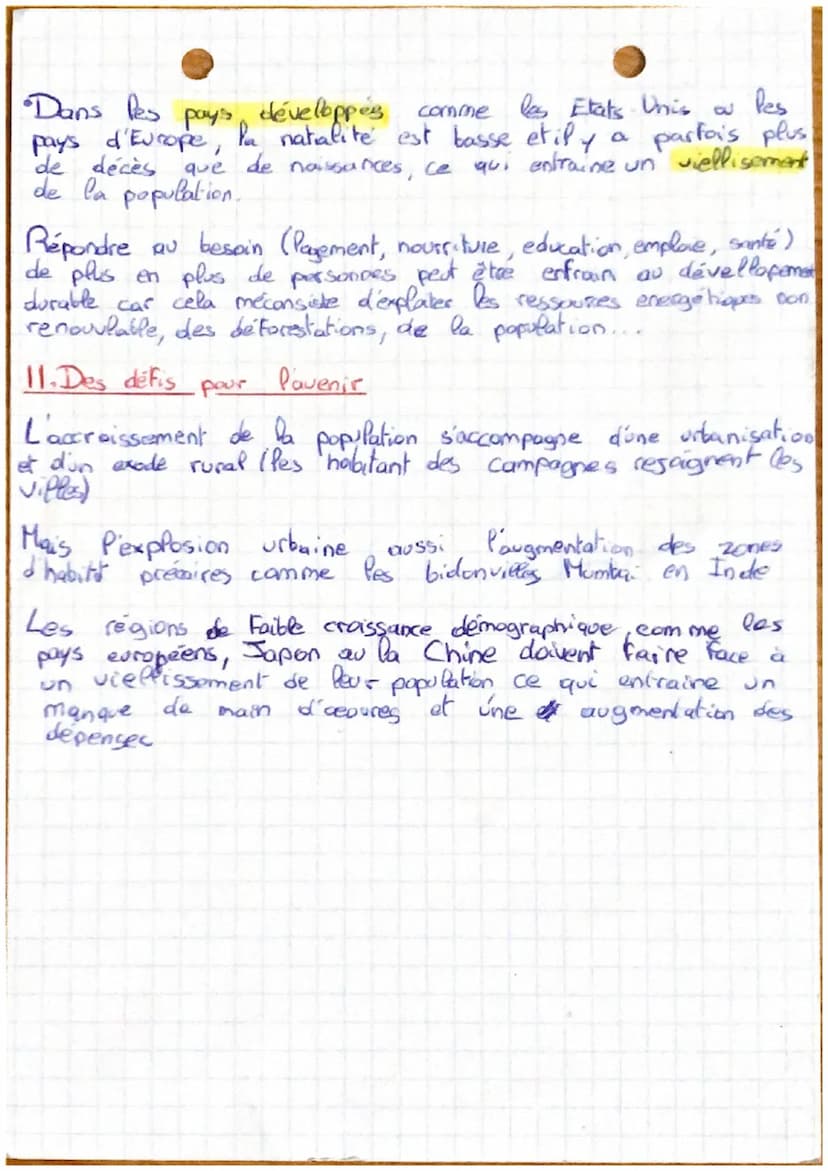 Dans les pays développés comme les Etats Unis ou les
pays d'Europe, la natialité est basse et il y a parfois plus
de décès que de naissances, ce qui entraine un viellisement
de la population.
Répondre au besoin (logement, nourriture, education, emploie, santé)
de plus en plus de personnes peut être enfrain au dévellopement
durable car cela méconsiste d'exploiter les ressources energétiques non
renouvlable, des déforestations, de la population...
II. Des défis pour l'avenir
L'accroissement de la population s'accompagne d'une urbanisation
et d'un exode rural (les habitant des campagnes rejoignent les
villes)
Mais l'explosion urbaine aussi l'augmentation des zones
d'habitat précaires comme les bidonvilles Mumbai en Inde
Les régions de faible croissance démographique, comme les
pays européens, Japon ou la Chine doivent faire face à
un viellissement de leur population ce qui entraine un
manque de main d'œuvres et une augmentation des
dépenses